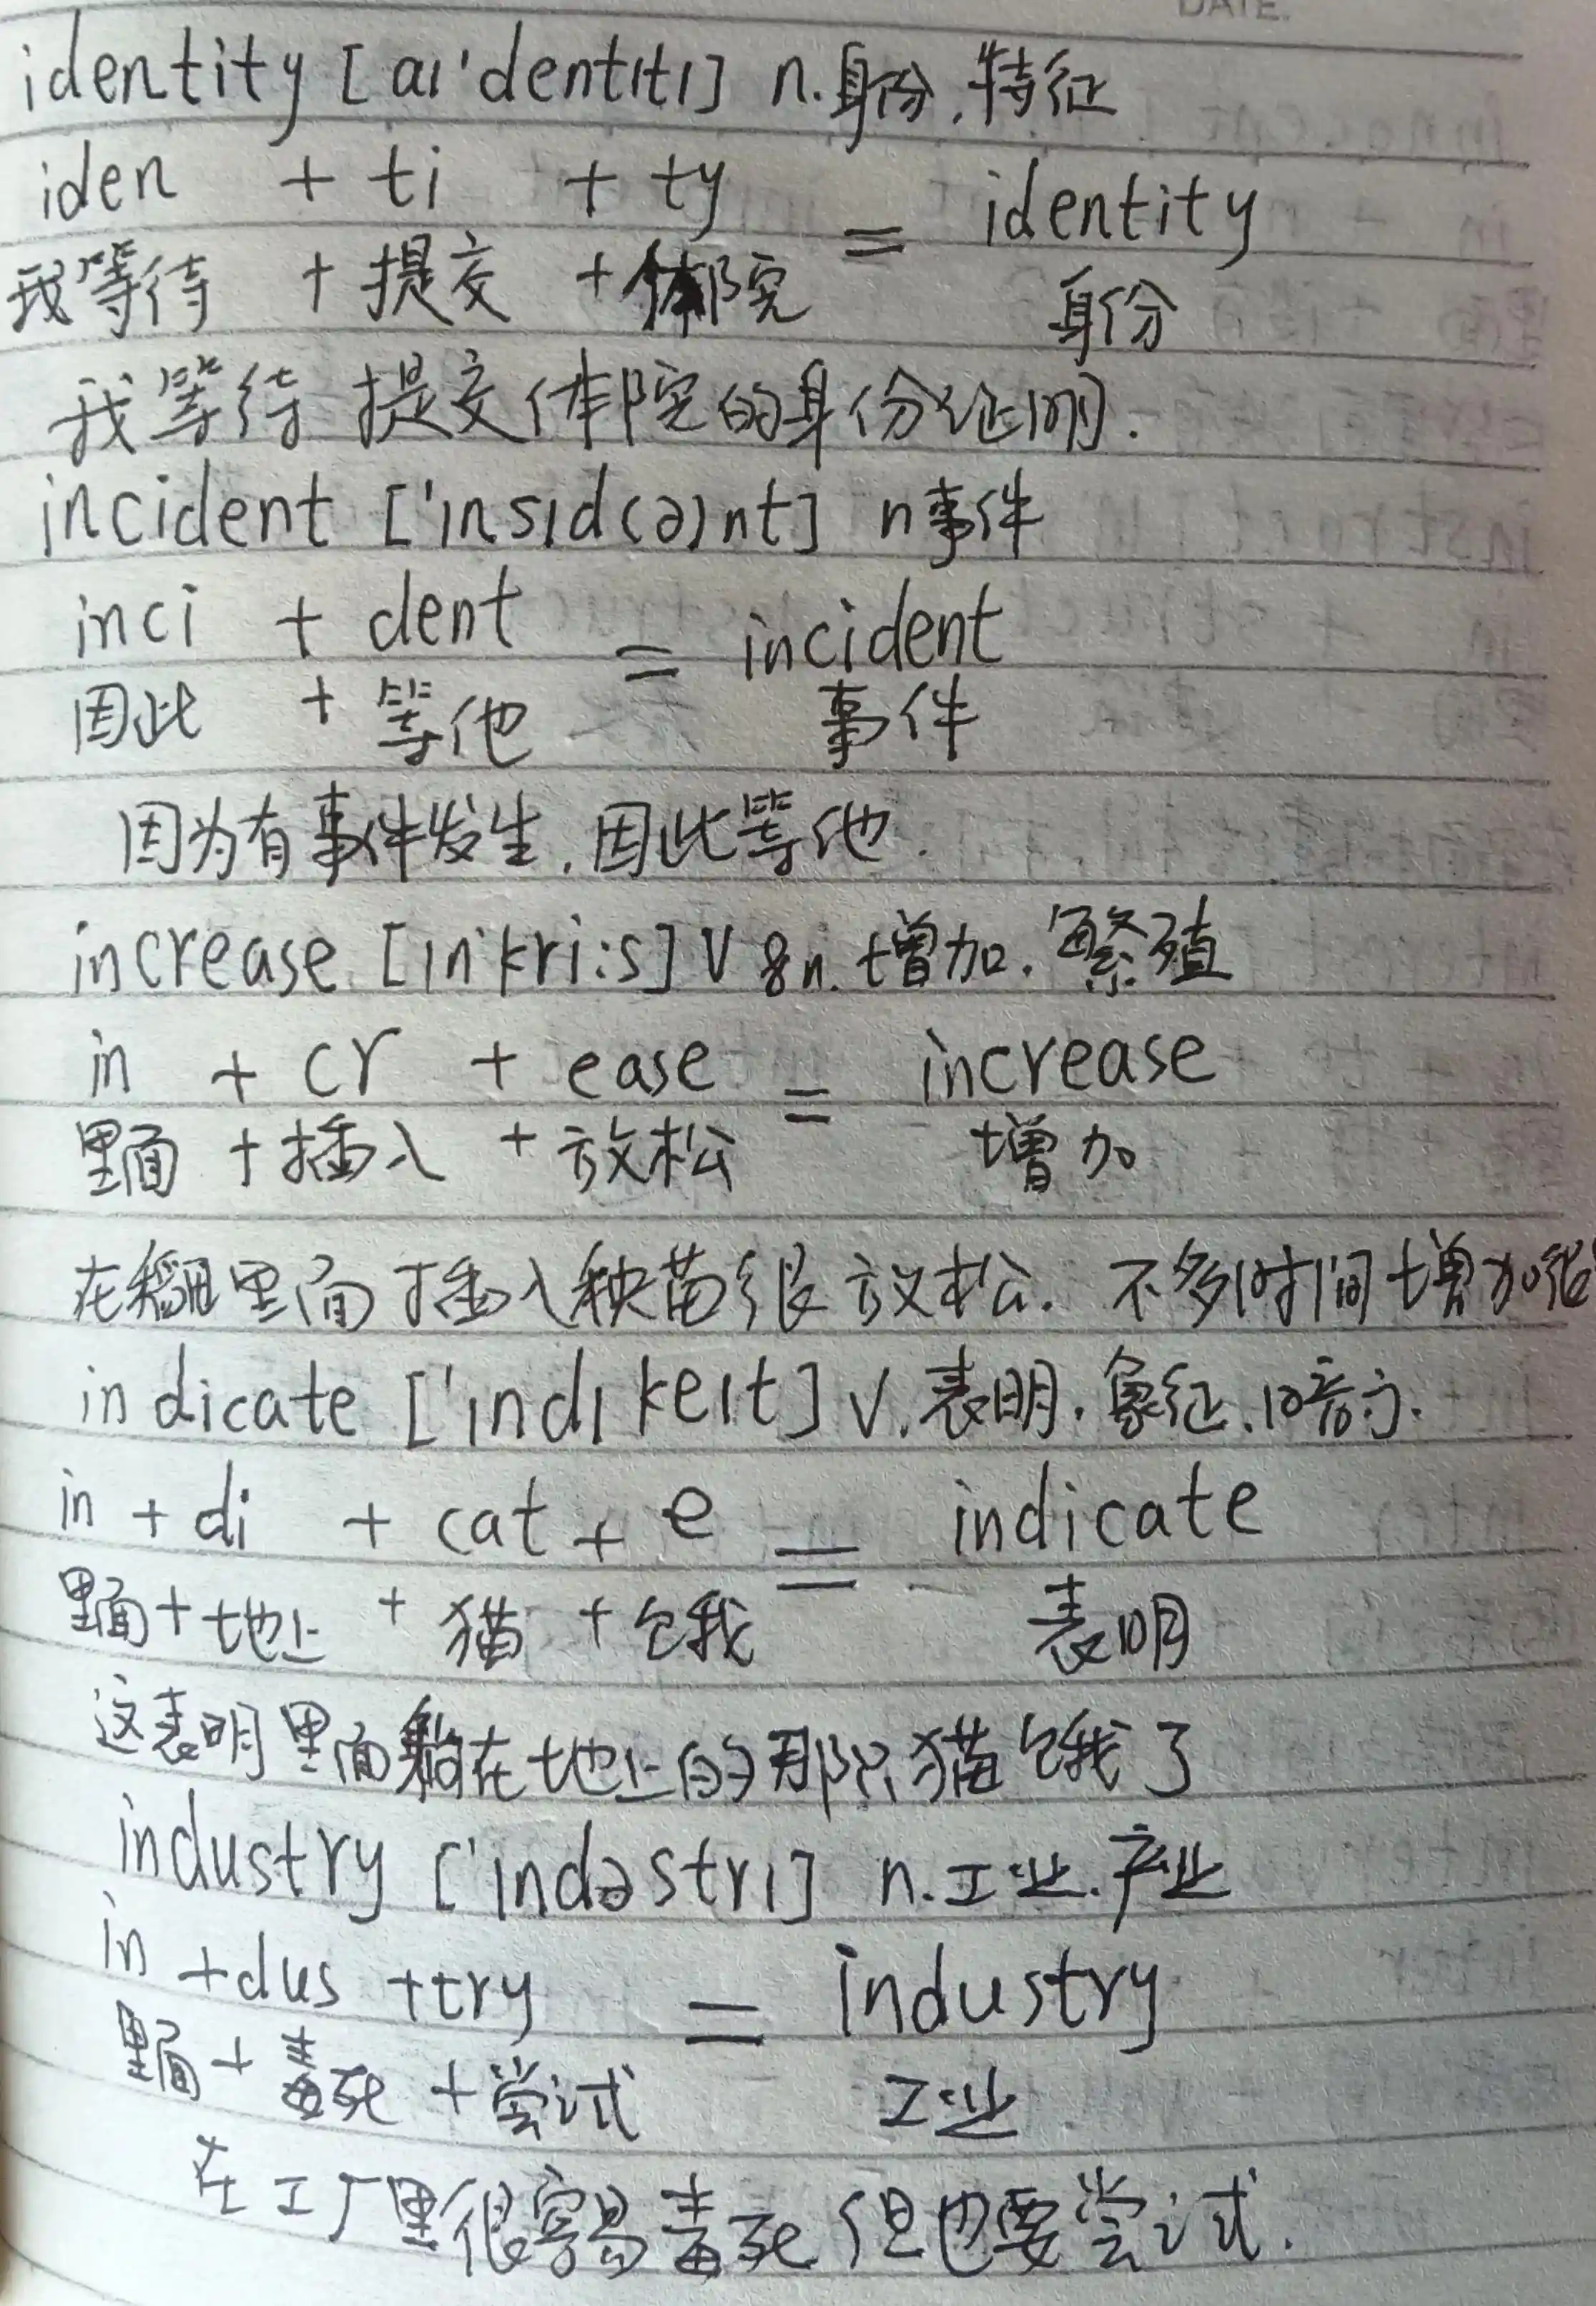 DATE.
identity [aɪ'dentɪtɪ] n.身份.特征
iden + ti + ty = identity
我等待 + 提交 + 体院 身份
我等待提交体院的身份证明.
incident ['ɪnsɪd(ə)nt] n事件
inci + dent = incident
因此 + 等他 事件
因为有事件发生,因此等他.
increase [ɪn'kri:s] V&n.增加.繁殖
in + cr + ease = increase
里面 + 插入 + 放松 增加
在稻田里面插入秧苗很放松.不多时间增加很
indicate ['ɪndɪkeɪt] v.表明.象征.暗示.
in + di + cat + e = indicate
里面 + 地上 + 猫 + 饿 表明
这表明里面躺在地上的那只猫饿了
industry ['ɪndəstrɪ] n.工业.产业
in + dus + try = industry
里面 + 毒死 + 尝试 工业
在工厂里很容易毒死但也要尝试.